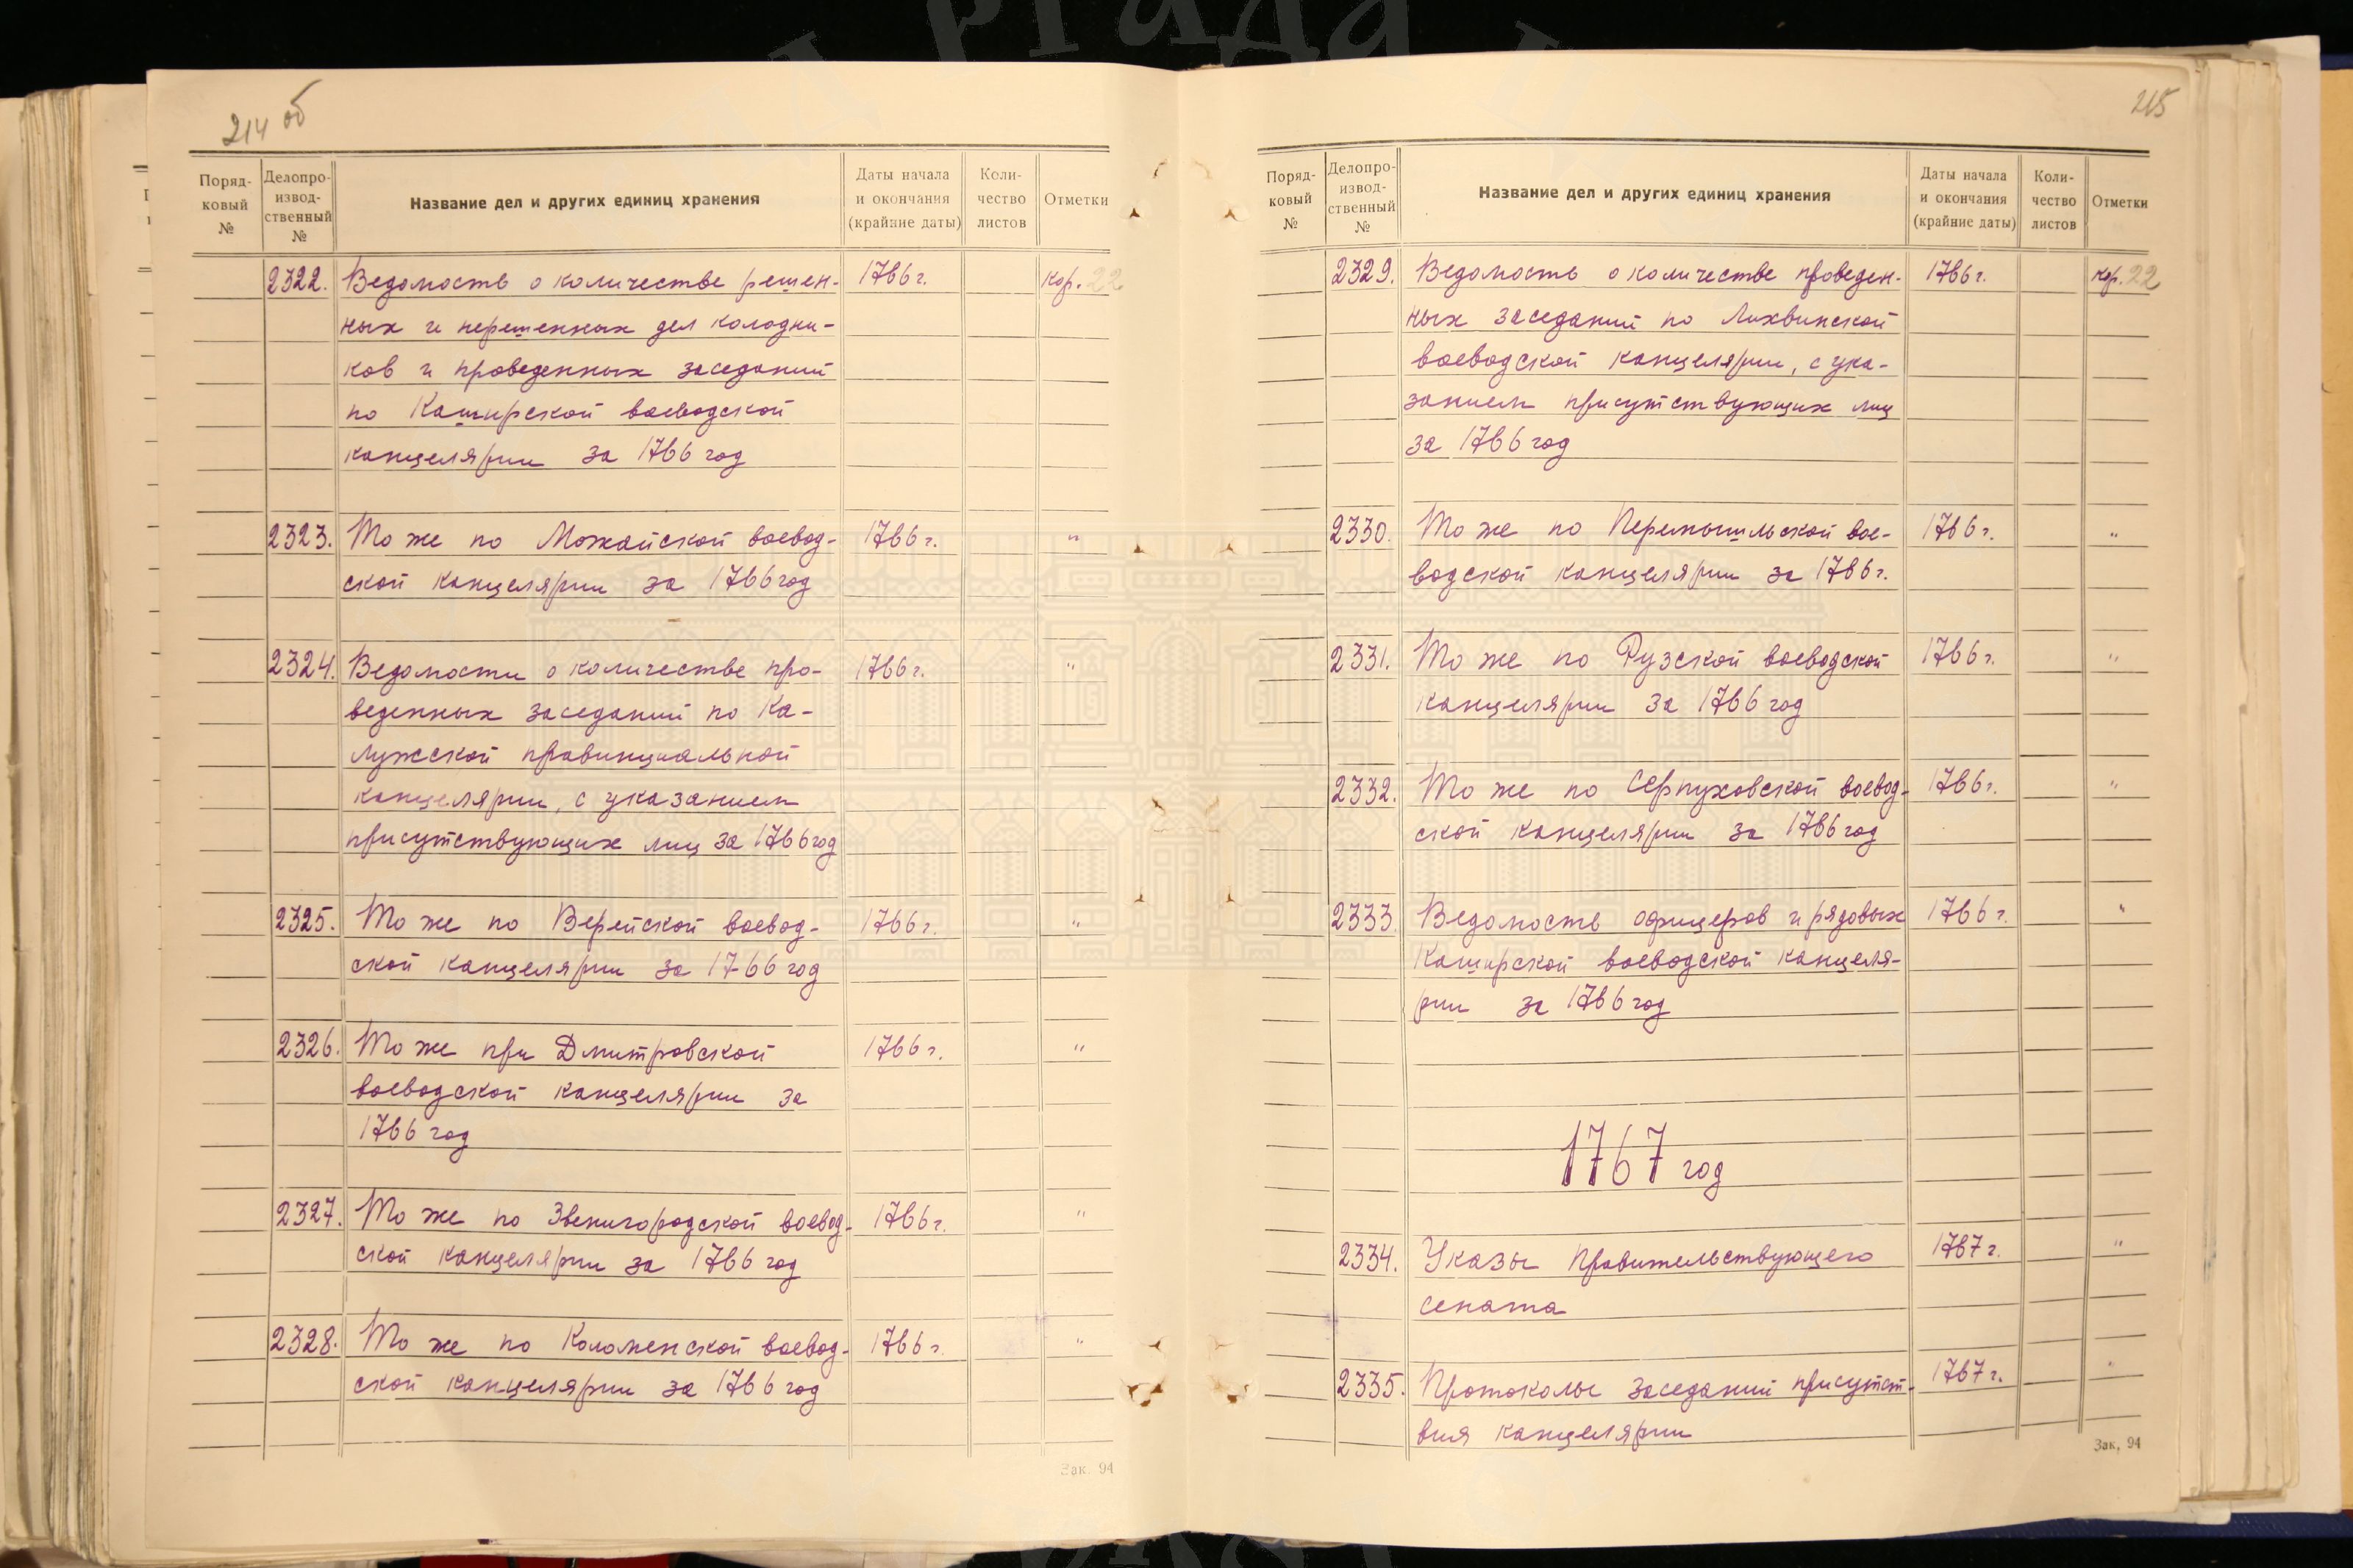 214 об
Поряд-
ковый
№
Делопро-
извод-
ственный
№
Название дел и других единиц хранения
Даты начала
и окончания
(крайние даты)
Коли-
чество
листов
Отметки
2322. Ведомость о количестве решен- 1766 г. кор. 22
ных и нерешенных дел колодни-
ков и проведенных заседаний
по Каширской воеводской
канцелярии за 1766 год
2323. То же по Можайской воевод- 1766 г. "
ской канцелярии за 1766 год
2324. Ведомости о количестве про- 1766 г. "
веденных заседаний по Ка-
лужской провинциальной
канцелярии, с указанием
присутствующих лиц за 1766 год
2325. То же по Верейской воевод- 1766 г. "
ской канцелярии за 1766 год
2326. То же при Дмитровской 1766 г. "
воеводской канцелярии за
1766 год
2327. То же по Звенигородской воевод- 1766 г. "
ской канцелярии за 1766 год
2328. То же по Коломенской воевод- 1766 г. "
ской канцелярии за 1766 год
Зак. 94
215
Поряд-
ковый
№
Делопро-
извод-
ственный
№
Название дел и других единиц хранения
Даты начала
и окончания
(крайние даты)
Коли-
чество
листов
Отметки
2329. Ведомость о количестве проведен- 1766 г. кор. 22
ных заседаний по Лихвинской
воеводской канцелярии, с ука-
занием присутствующих лиц
за 1766 год
2330. То же по Перемышльской вое- 1766 г. "
водской канцелярии за 1766 г.
2331. То же по Рузской воеводской 1766 г. "
канцелярии за 1766 год
2332. То же по Серпуховской воевод- 1766 г. "
ской канцелярии за 1766 год
2333. Ведомость офицеров и рядовых 1766 г. "
Каширской воеводской канцеля-
рии за 1766 год
1767 год
2334. Указы Правительствующего 1767 г. "
сената
2335. Протоколы заседаний присутст- 1767 г. "
вия канцелярии
Зак. 94